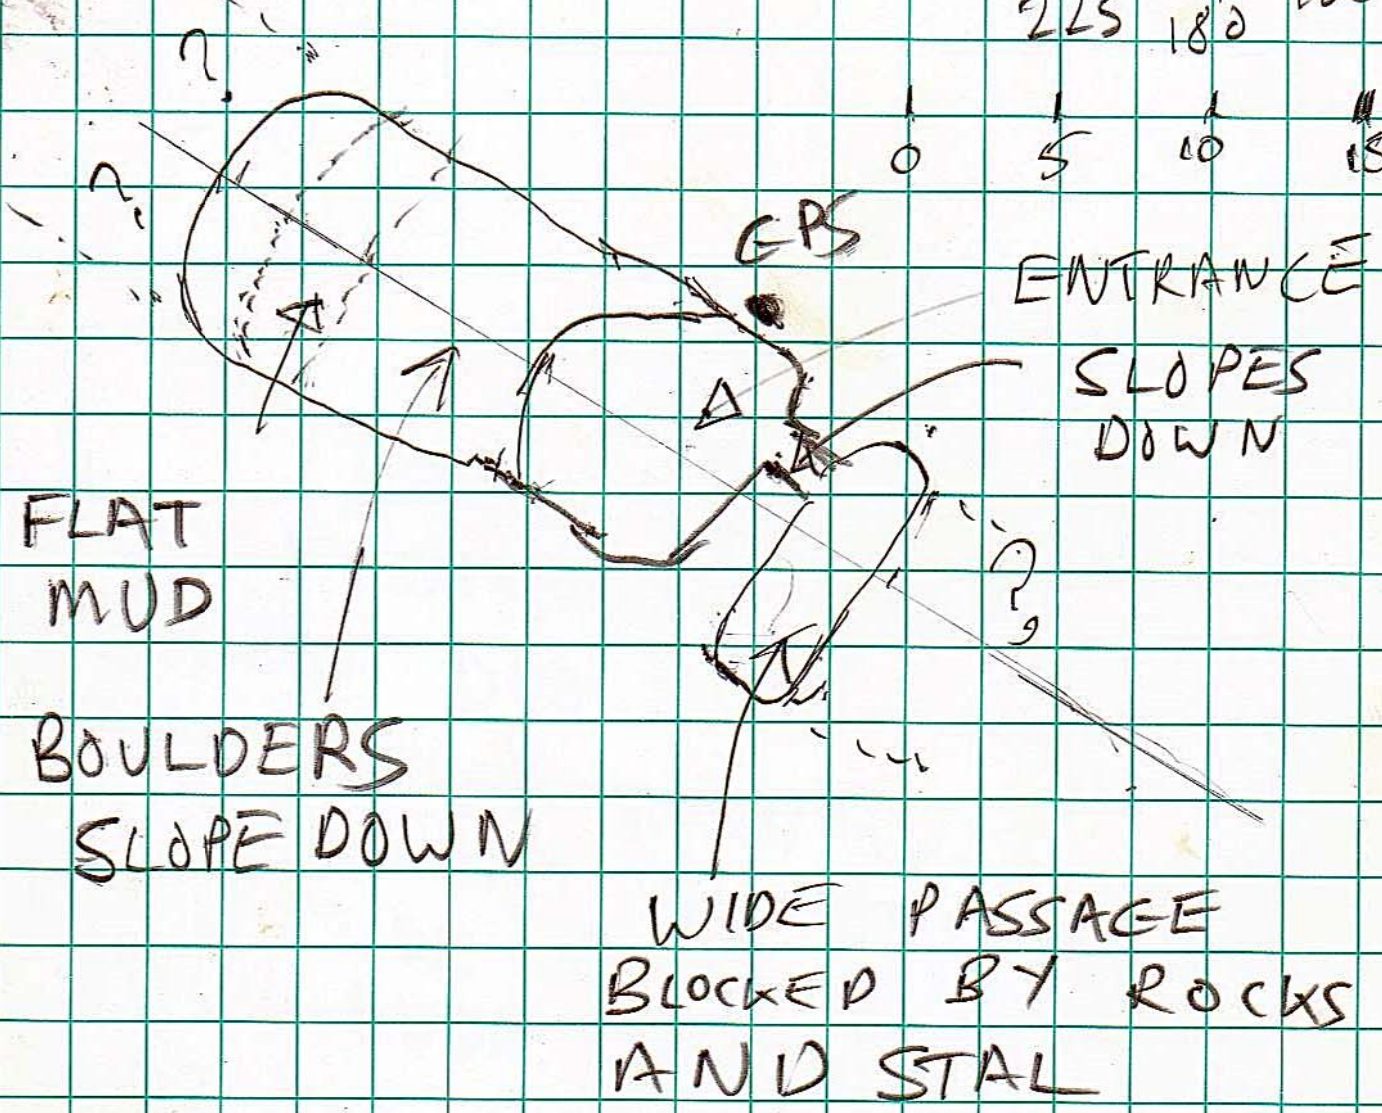 225 180
0 5 10 15
?
?
GPS
ENTRANCE
SLOPES
DOWN
?
FLAT
MUD
BOULDERS
SLOPE DOWN
WIDE PASSAGE
BLOCKED BY ROCKS
AND STAL